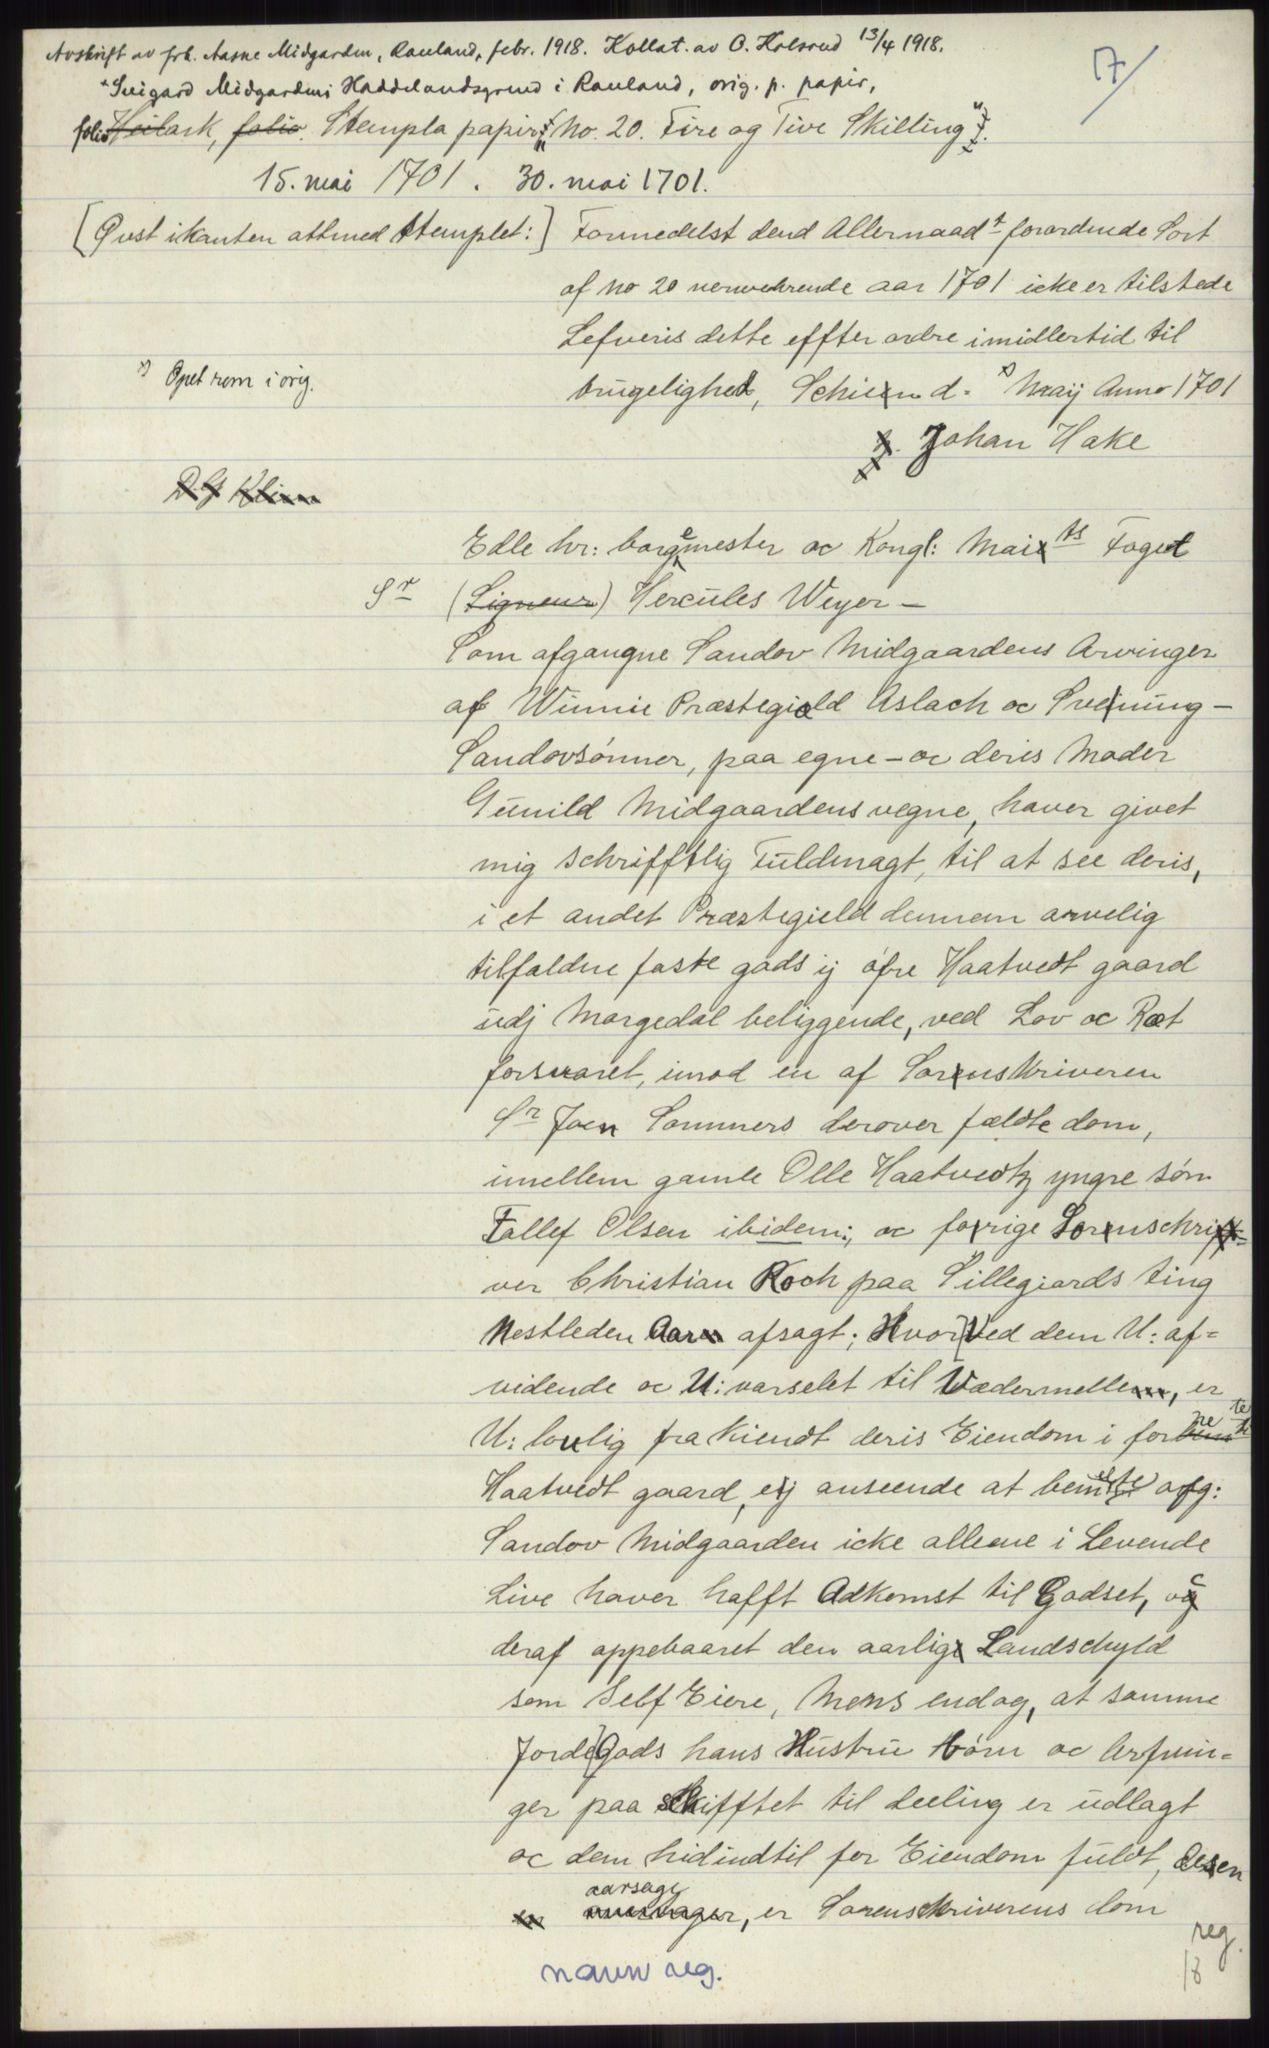 Avskrift av frk. Aasne Midgarden, Rauland, febr. 1918. Kollat. av O. Kolsrud 13/4 1918.
17/
Midgardens Haddelandsgrend i Rauland, orig. p. papir,
folio Heilark, folio. Stempla papir: No. 20. Fire og Tive Skilling
15. mai 1701. 30. mai 1701.
[Øvst ikanten attmed stemplet:] Formedelst dend Allernaadt forordnede Sort
af no 20 nerwehrende aar 1701 icke er tilstede
Lefveris dette effter ordre imidlertid til
x) Opet rom i orig.
brugelighed, Schien d. x) Maij Anno 1701
Johan Hake
Edle hr: borgemester oc Kongl: Maits Foget
Sr (Signeur) Hercules Weyer —
Som afgangne Sandov Midgaardens Arvinger
af Winnie Præstegield Aslach oc Sveinung –
Sandovsønner, paa egne – oc deris Moder
Gunild Midgaardens vegne, haver givet
mig schrifftlig Fuldmagt, til at see deris,
i et andet Præstegield dennem arvelig
tilfaldne faste gods ij øfre Haatvedt gaard
udj Morgedal beliggende, ved Lov oc Ræt
forsvaret, imod en af Sorenskriveren
Sr Joen Sommers derover fældte dom,
imellem gamle Olle Haatvedtz yngre søn
Tallef Olsen ibidem; oc forige Sorenschri=
ver Christian Koch paa Sillegiords ting
Nestleden Aar afsagt; Hvor Ved dem U: af=
vidende oc U: varselet til Vædermelle, er
U: lovlig fra Kiendt deris Eiendom i forne te
Haatvedt gaard, ej anseende at bemelte afg:
Sandov Midgaarden icke alleene i Levende
Live haver hafft Adkomst til Godset, oc
deraf oppebaaret den aarlig Landschyld
som Self Eiere, Mens endog, at samme
Jorde Gods hans Hustru børn oc Arfvin=
ger paa Skifftet til deeling er udlagt
oc dem hidindtil for Eiendom fuldt,
aarsage, er Sorenskriverens dom
navn reg.
reg.
18